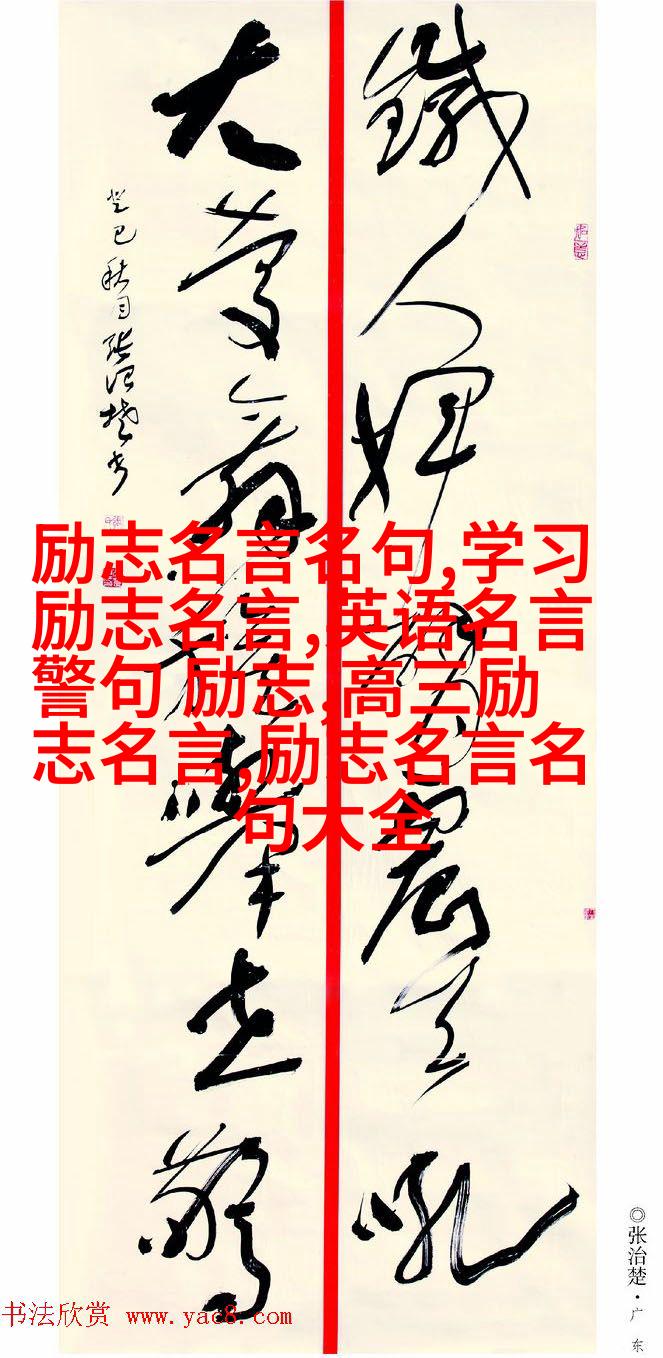 鐵人揮震天吼
大慶旗舉世驚
癸巳秋月張治楚书
励志名言名句,学习
励志名言,英语名言
警句 励志,高三励
志名言,励志名言名
句大全
◎张治楚·广东
书法欣赏 www.yac8.com